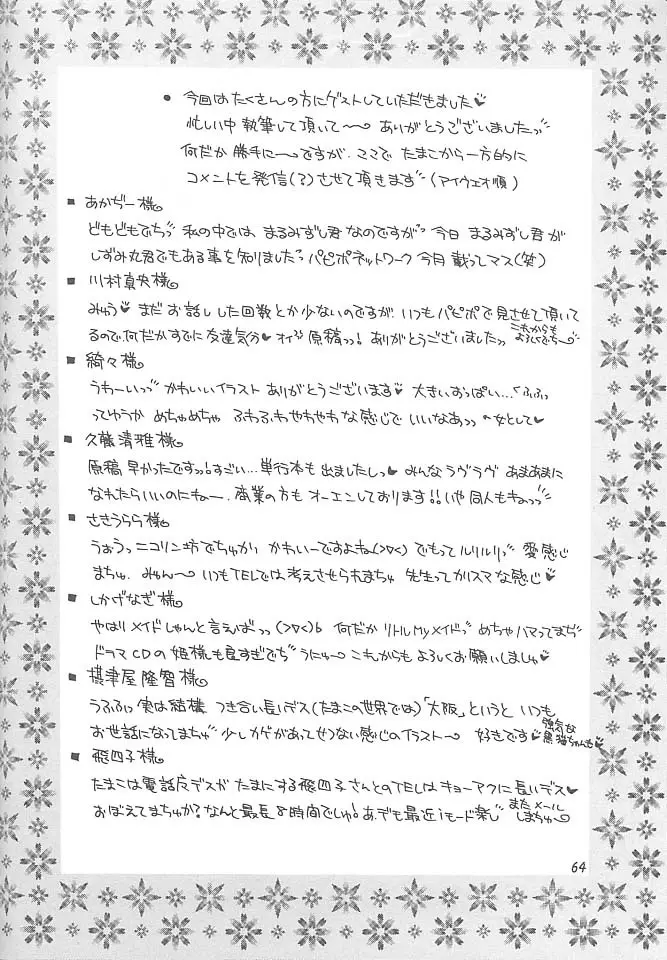 ● 今回はたくさんの方にゲストしていただきました♥
忙しい中 執筆して頂いて〜 ありがとうございましたッ
何だか 勝手に〜ですが、ココで たまこから一方的に
コメントを発信(?)させて頂きます (アイウェオ順)
■ あかぢー様
どもどもでちッ 私の中では、まるみずし君なのですが 今日 まるみずし君が
しずみ丸君でもある事を知りましたッ パピポネットワーク今月載ってマス(笑)
■ 川村真央様
みゅう♥ まだ お話しした回数とか少ないのですが、いつもパピポで見させて頂いて
るので、何だかすでに友達気分♥ 原稿っ! ありがとうございましたッ これからもよろしくでち〜
■ 綺々様
うわーいッ かわいいイラスト ありがとうございます♥ 大きいおっぱい…くふふっ
ってゆうか めちゃめちゃ ふわふわやわやわな感じで いいなあっ の女として♥
■ 久藤清雅様
原稿 早かったですっ!すごい…単行本も出ましたしっ♥ みんなラヴラヴ あまあまに
なれたらいいのにキュー、商業の方も オーエンしております!!いや 同人もキュッ
■ ささうらら様
うぉうっ ニコリン坊でちゅかり かわいーですよね(>▽<) でもって ルリルリッ 愛感じ
まちゅ、みゅん〜 いつもTELでは 考えさせられまちゅ 先生ってカリスマな感じ♥
■ しかげなぎ様
やはり メイドしゃんと言えばッ (>▽<)b 何だか リトルMyメイドッ めちゃハマってまぢ
ドラマCDの姫様も良すぎでち うにゅ〜 これからも よろしくお願いしましゅ♥
■ 摂津屋隆智様
うふふッ 実は結構 つき合い長いデス(たまこの世界では)「大阪」というと いつも
お世話になってまちゅ 少しカゲがあってせつない感じのイラスト〜 好きです♥ 強気な黒猫ちゃんも♥
■ 飛四子様
たまこは電話反デスが たまにする飛四子さんとのTELはキョーアクに長いデス♥
おぼえてまちゅか?なんと最長8時間でしゅ!あ、でも最近iモード楽し また メールしまちゅ〜
64